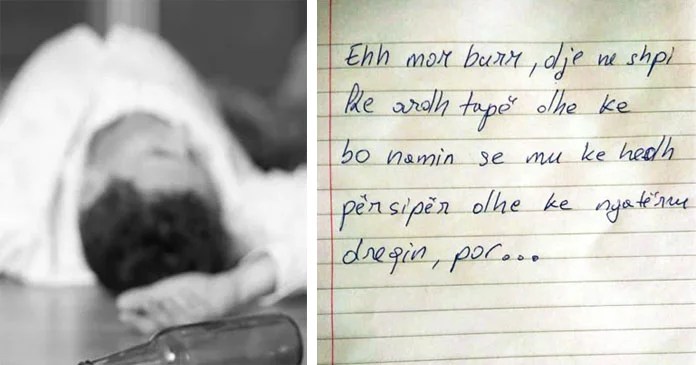 Ehh mor burr, dje ne shpi
ke ardh tapë dhe ke
bo namin se mu ke hedh
përsipër dhe ke ngatërru
dreqin, por...